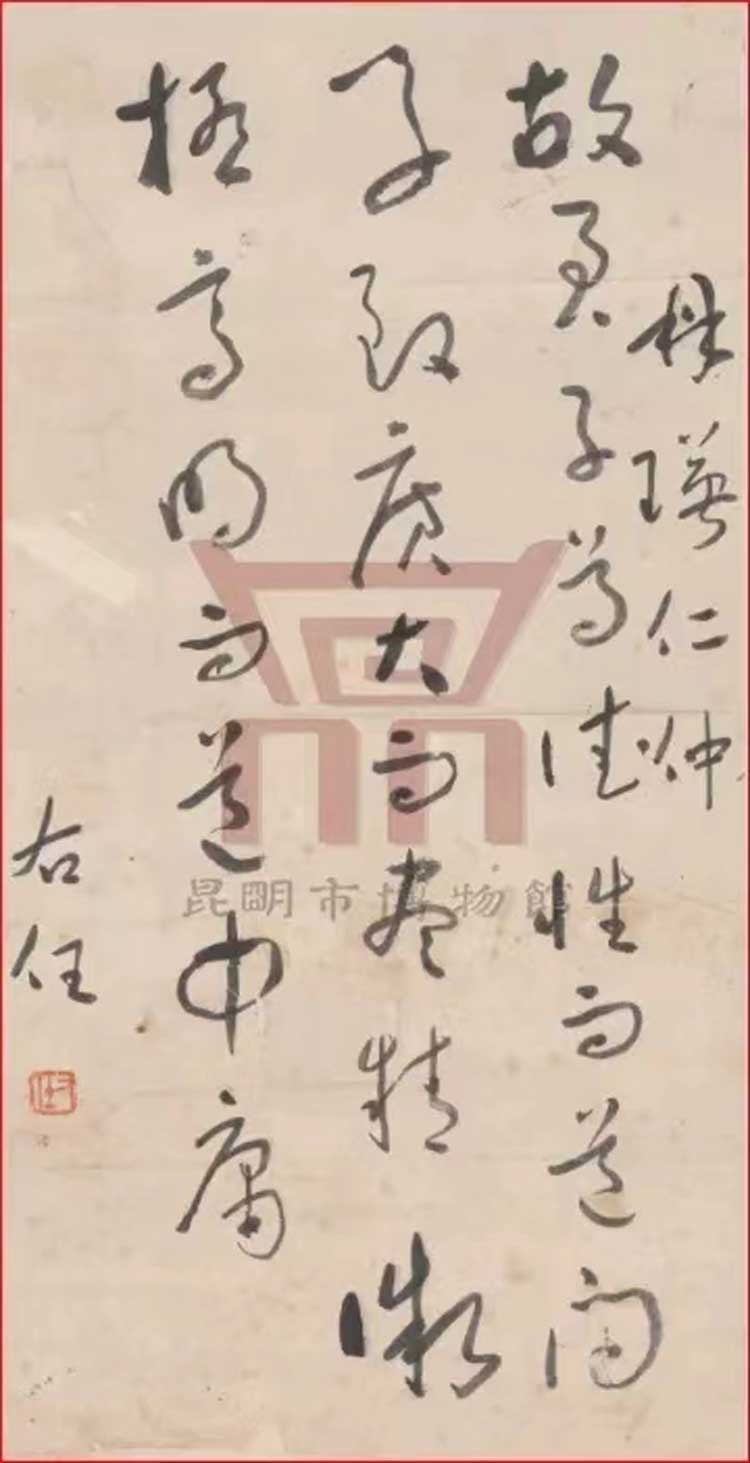 瑛仁仲
故君子尊德性而道問
學致廣大而盡精微
極高明而道中庸
右任
右任
昆明市博物館